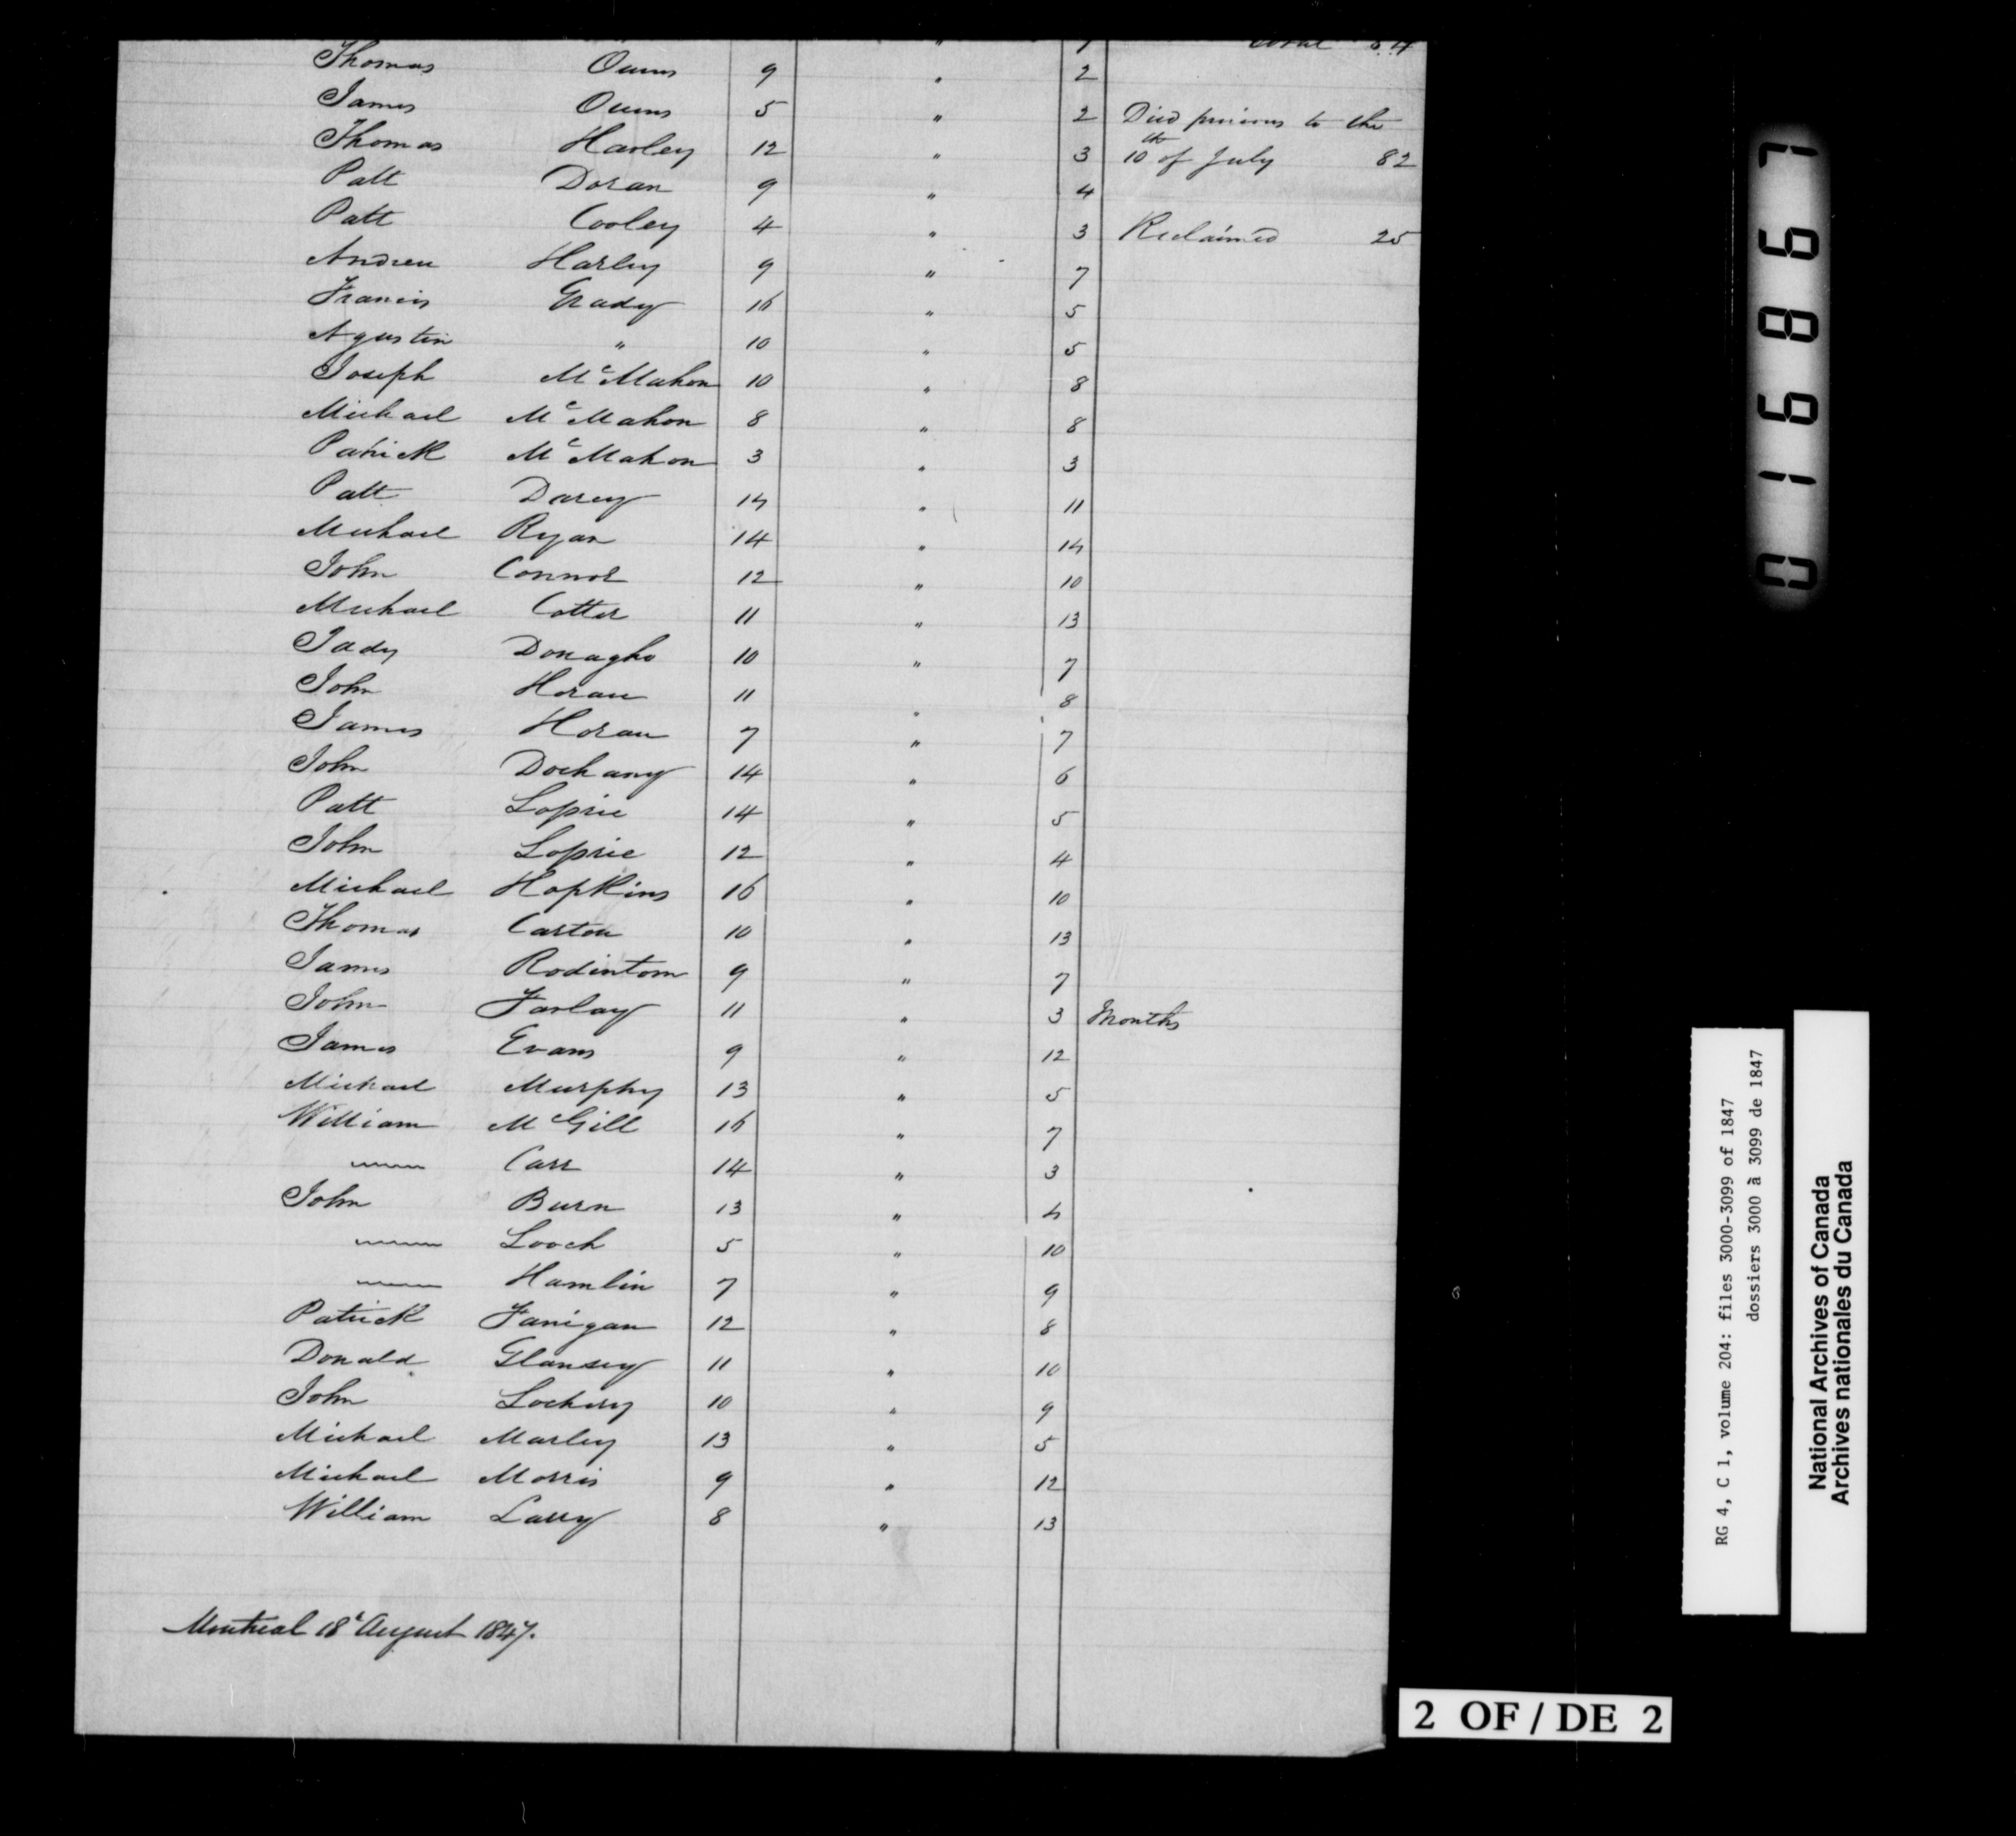 " 1 Total 54
Thomas Owens 9 " 2
James Owens 5 " 2 Died previous to the
Thomas Harley 12 " 3 10th of July 82
Patt Doran 9 " 4
Patt Cooley 4 " 3 Reclaimed 25
Andrew Harley 9 " 7
Francis Grady 16 " 5
Agustin " 10 " 5
Joseph McMahon 10 " 8
Michael McMahon 8 " 8
Patrick McMahon 3 " 3
Patt Darcy 14 " 11
Michael Ryan 14 " 14
John Connor 12 " 10
Michael Cotter 11 " 13
Tady Donagho 10 " 7
John Horan 11 " 8
James Horan 7 " 7
John Dochany 14 " 6
Patt Loprie 14 " 5
John Loprie 12 " 4
Michael Hopkins 16 " 10
Thomas Carton 10 " 13
James Rodintom 9 " 7
John Farlay 11 " 3 Months
James Evans 9 " 12
Michael Murphy 13 " 5
William McGill 16 " 7
Carr 14 " 3
John Burn 13 " 4
Looch 5 " 10
Hamlin 7 " 9
Patrick Fanigan 12 " 8
Donald Glansey 11 " 10
John Lockery 10 " 9
Michael Marley 13 " 5
Michael Morris 9 " 12
William Larry 8 " 13
Montreal 18t August 1847.
016867
RG 4, C 1, volume 204: files 3000-3099 of 1847
dossiers 3000 à 3099 de 1847
National Archives of Canada
Archives nationales du Canada
2 OF / DE 2